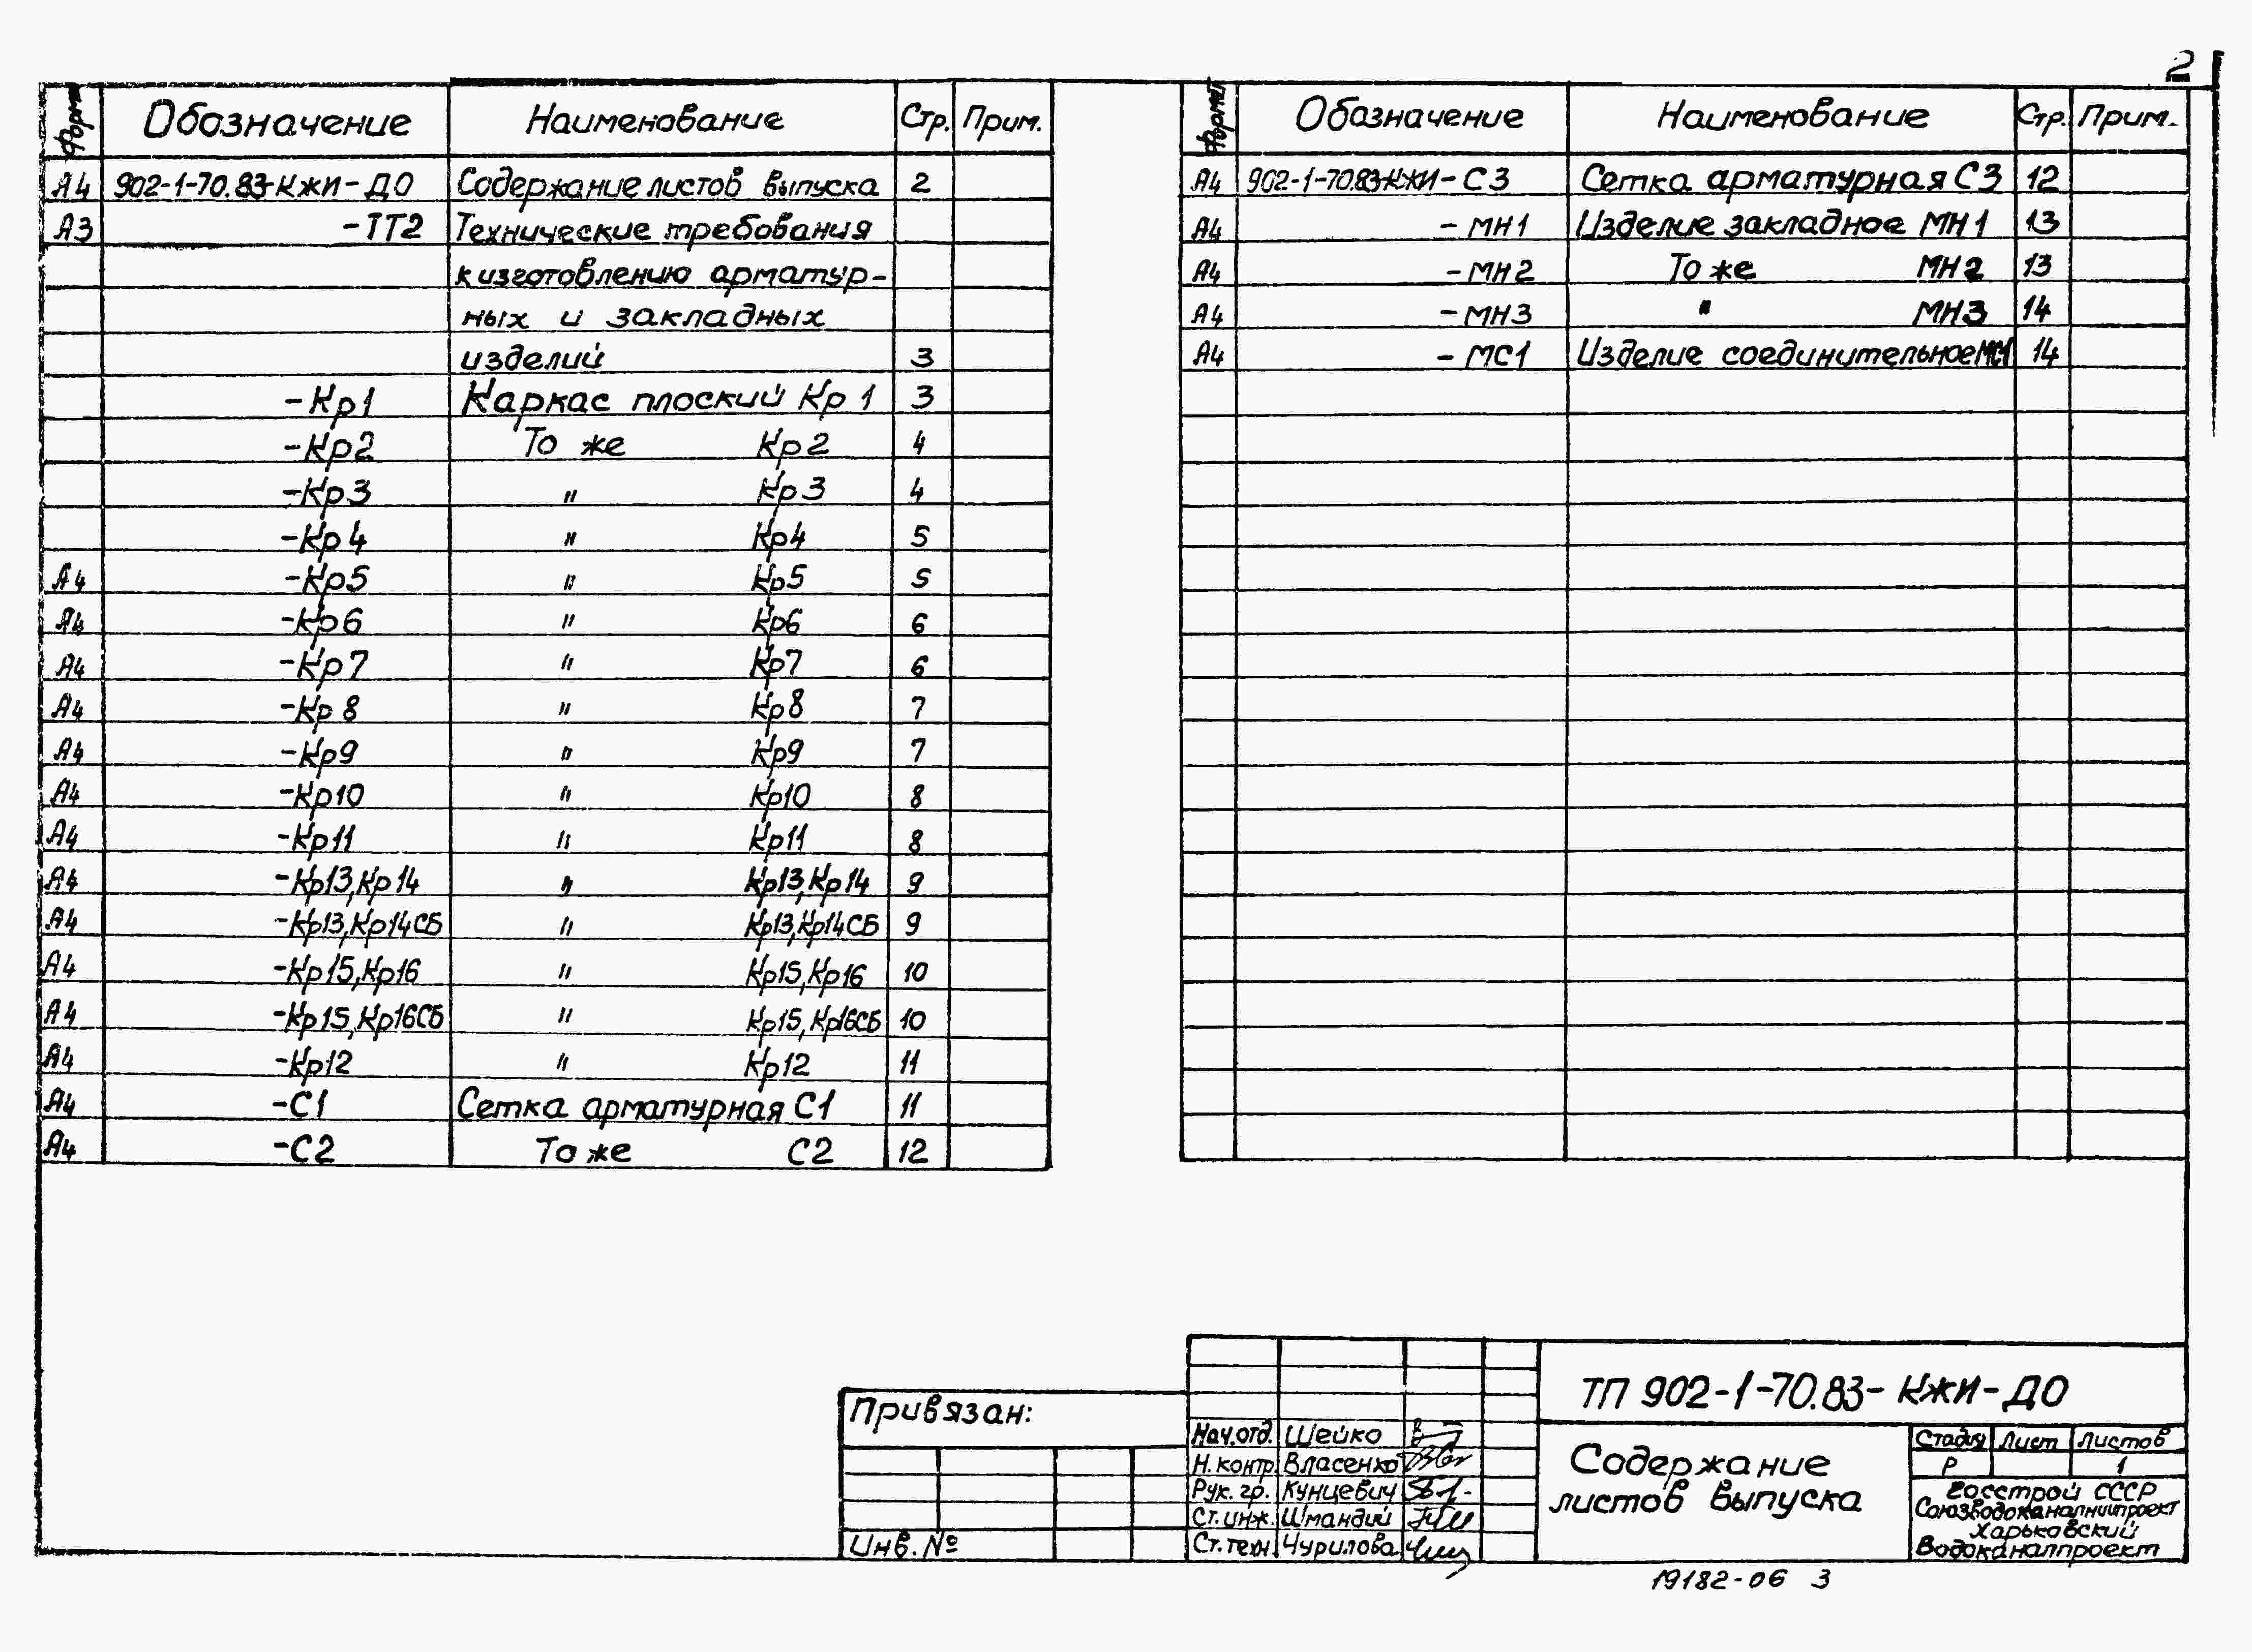 2
Формат Обозначение Наименование Стр. Прим.
А4 902-1-70.83-КЖИ-ДО Содержание листов выпуска 2
А3 -ТТ2 Технические требования
к изготовлению арматур-
ных и закладных
изделий 3
-Кр1 Каркас плоский Кр1 3
-Кр2 То же Кр2 4
-Кр3 " Кр3 4
-Кр4 " Кр4 5
А4 -Кр5 " Кр5 5
А4 -Кр6 " Кр6 6
А4 -Кр7 " Кр7 6
А4 -Кр8 " Кр8 7
А4 -Кр9 " Кр9 7
А4 -Кр10 " Кр10 8
А4 -Кр11 " Кр11 8
А4 -Кр13,Кр14 " Кр13,Кр14 9
А4 -Кр13,Кр14СБ " Кр13,Кр14СБ 9
А4 -Кр15,Кр16 " Кр15,Кр16 10
А4 -Кр15,Кр16СБ " Кр15,Кр16СБ 10
А4 -Кр12 " Кр12 11
А4 -С1 Сетка арматурная С1 11
А4 -С2 То же С2 12
Формат Обозначение Наименование Стр. Прим.
А4 902-1-70.83-КЖИ-С3 Сетка арматурная С3 12
А4 -МН1 Изделие закладное МН1 13
А4 -МН2 То же МН2 13
А4 -МН3 " МН3 14
А4 -МС1 Изделие соединительное МС1 14
Привязан:
Инв. №
Нач.отд. Шейко
Н.контр. Власенко
Рук. гр. Кунцевич
Ст.инж. Шмандий
Ст.техн. Чурилова
ТП 902-1-70.83-КЖИ-ДО
Содержание
листов выпуска
Стадия Лист Листов
Р 1
Госстрой СССР
Союзводоканалниипроект
Харьковский
Водоканалпроект
19182-06 3